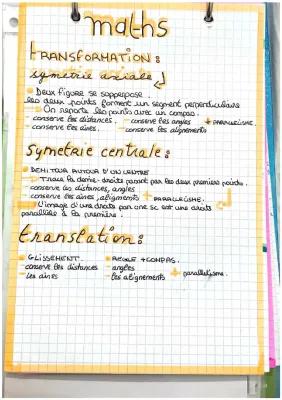 maths
TRANSFORMATION:
symetrie axiale
Deux figure se sopperpose.
les deux points forment un segment perpendiculaire
On reporte les points avec un compas.
- conserve les distances. - conserve les angles + PARALLELISME.
- conserve les aires. - conserve les alignements
symetrie centrale:
DEMI TOUR AUTOUR D'UN CENTRE
Trace la demie-droite passant par les deux premiers points.
- conserve les distances, angles
- conserve les aires, alignements + PARALLELISME.
L'image d'une droite par une sc est une droite
parallèle à la première.
translation:
GLISSEMENT. REGLE + COMPAS.
- conserve les distances - angles
- les aires - les alignements + parallelisme.